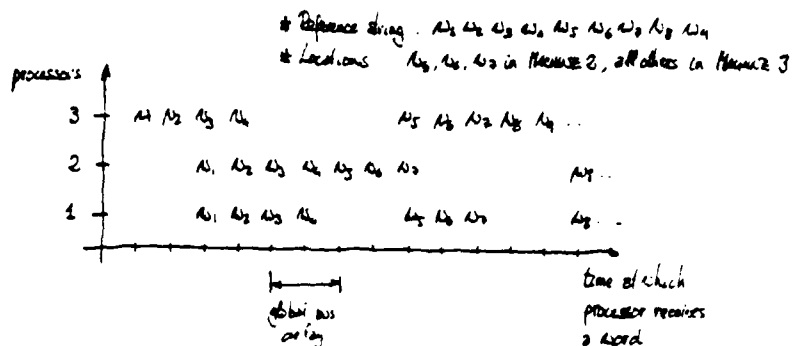 * Reference string . w1 w2 w3 w4 w5 w6 w7 w8 w9
* Locations w5, w6, w7 in MEMORY 2, all others in MEMORY 3
processors
3 w1 w2 w3 w4 w5 w6 w7 w8 w9 ..
2 w1 w2 w3 w4 w5 w6 w7 w8 ..
1 w1 w2 w3 w4 w5 w6 w7 w8 ..
global bus
delay
time at which
processor receives
a word